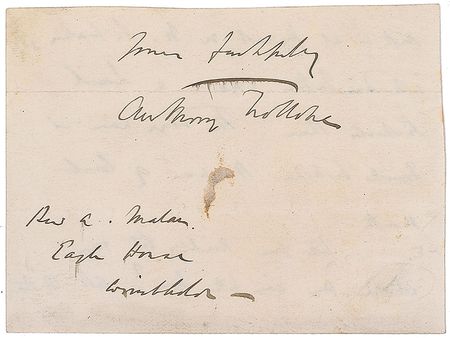 Yours faithfully
Anthony Trollope
Rev A. Malan
Eagle House
Wimbledon —